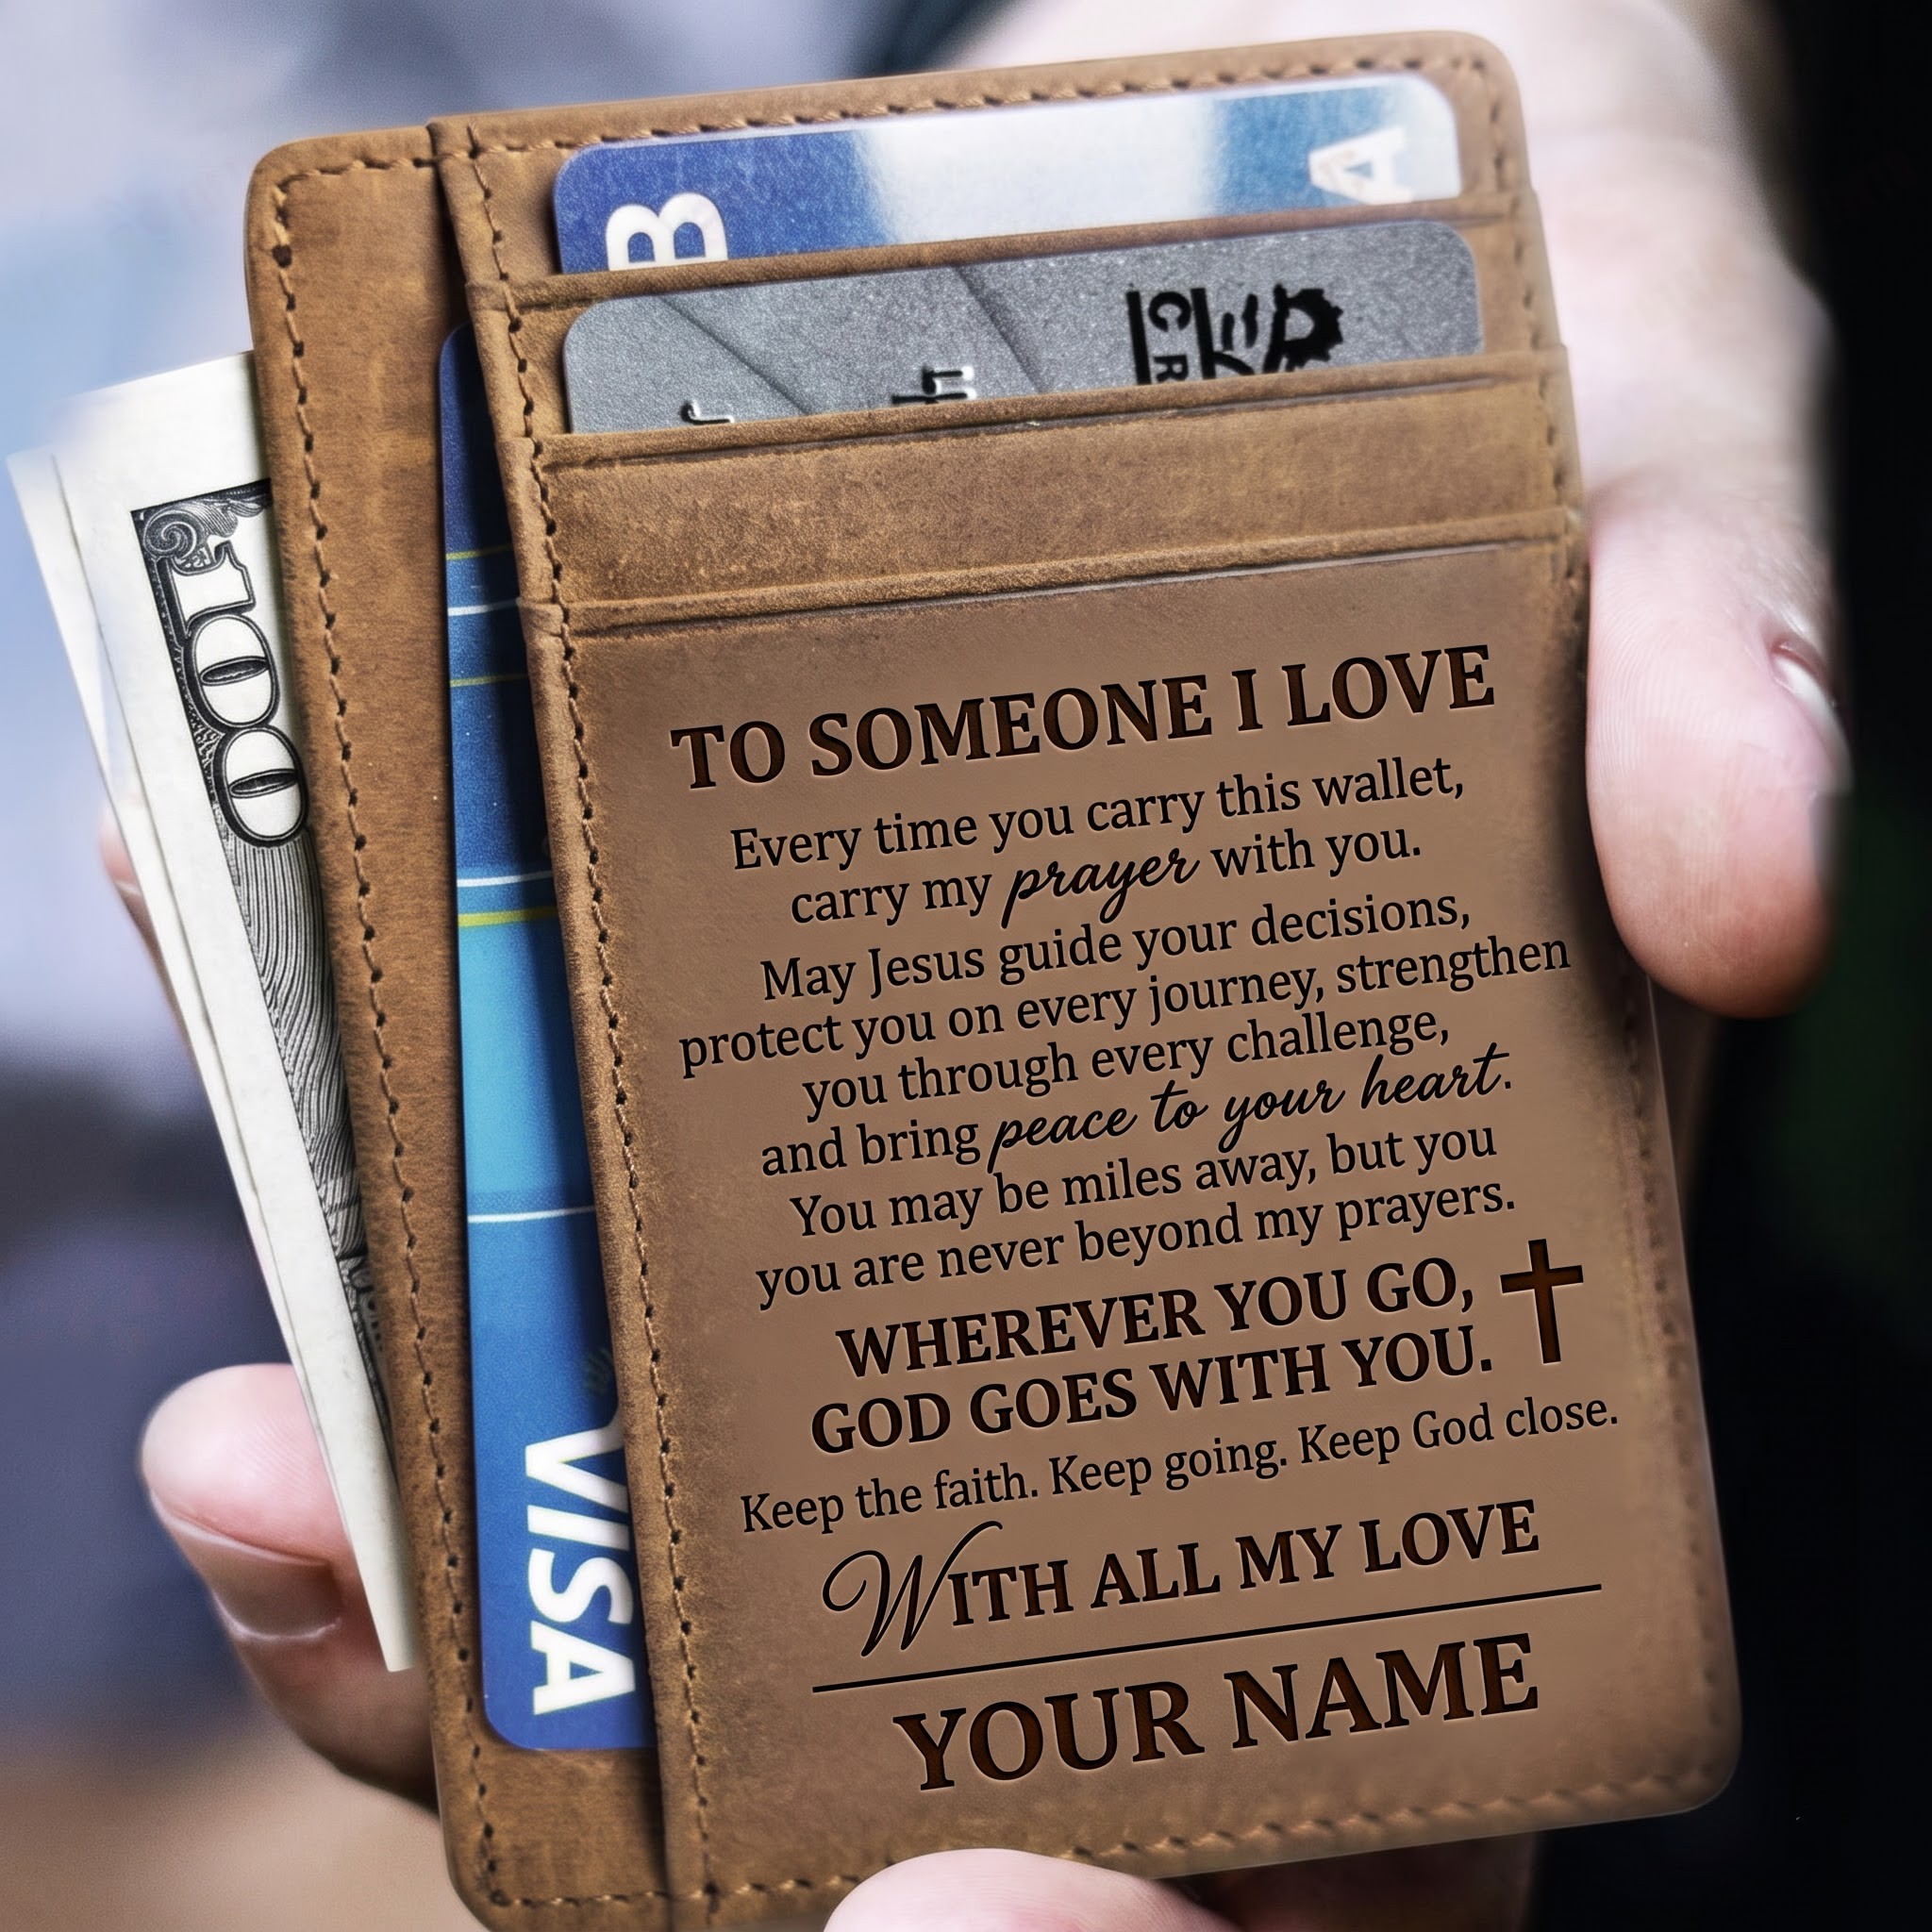 B
A
CR
100
VISA
TO SOMEONE I LOVE
Every time you carry this wallet,
carry my prayer with you.
May Jesus guide your decisions,
protect you on every journey, strengthen
you through every challenge,
and bring peace to your heart.
You may be miles away, but you
you are never beyond my prayers.
WHEREVER YOU GO,
GOD GOES WITH YOU.
Keep the faith. Keep going. Keep God close.
WITH ALL MY LOVE
YOUR NAME